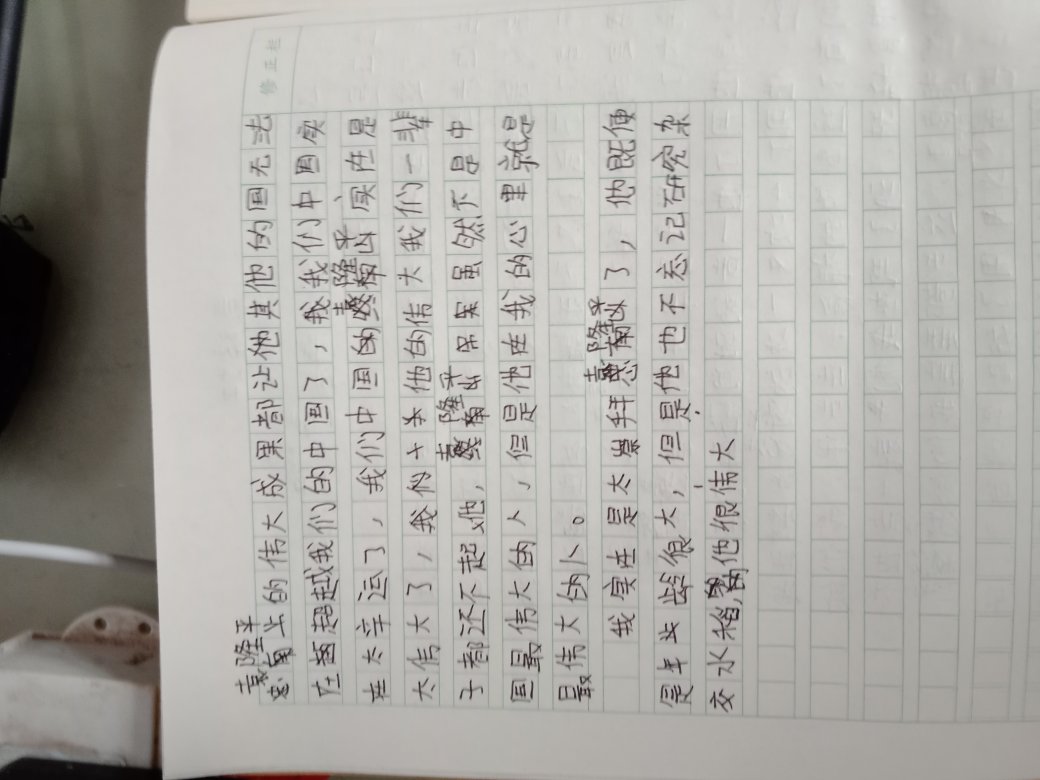 修正栏
袁隆平的伟大成果都让他其他的国无法
在超越我们的中国了，我我们中国实
在太幸运了，我们中国的袁隆平、实在是
太伟大了，我们他的伟大我们一辈
子都还不起他，袁隆平虽然不是中
国最伟大的人，但是他在我的心里就是
最伟大的人。
我实在是太崇拜袁隆平了，他既使
是年龄很大，但是他也不忘记研究杂
交水稻，他很伟大